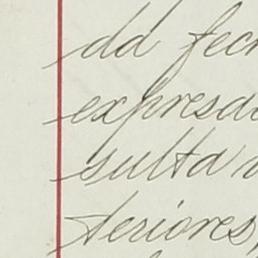 da fech
expresa
sulta
teriores,